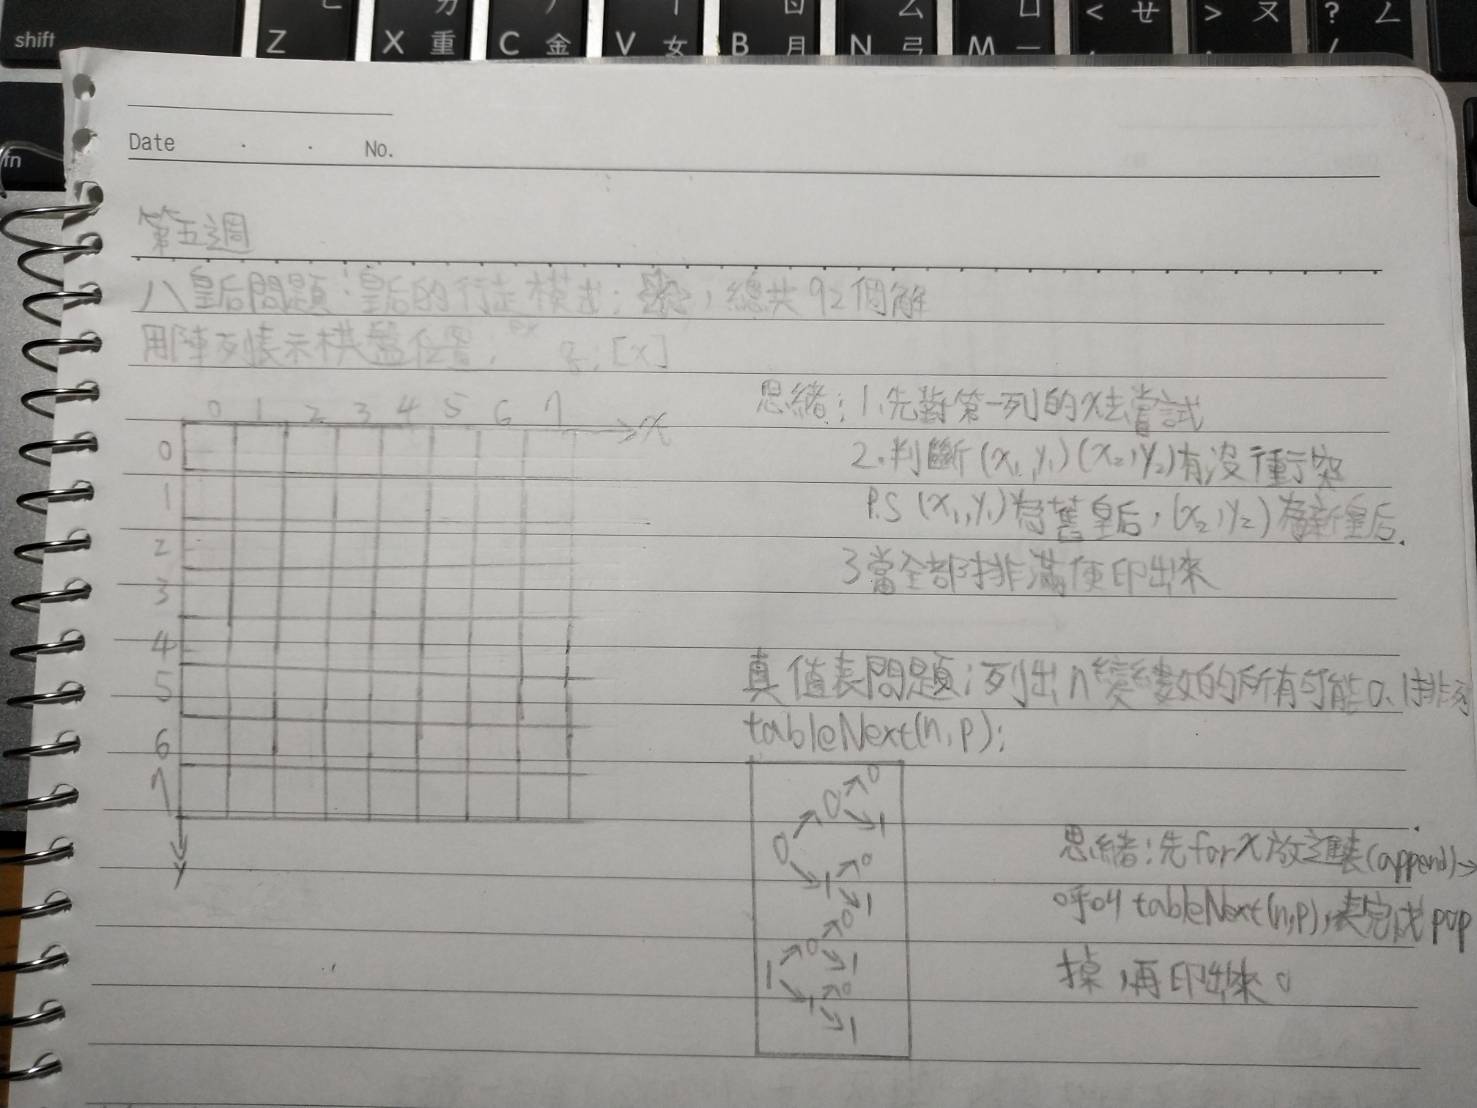 shift
Z ㄈ
X 重 ㄌ
C 金 ㄏ
V 女
B 月 ㄖ
N 弓 ㄙ
M 一 ㄩ
< ㄝ
> ㄡ
? ㄥ /
fn
Date . . No.
第五週
八皇后問題:皇后的行走模式: , 總共92個解
用陣列表示棋盤位置, [x]
0 1 2 3 4 5 6 7 x
0
1
2
3
4
5
6
7
y
思緒:1.先對第一列的x去嘗試
2.判斷(x₁,y₁)(x₂,y₂)有沒衝突
P.S (x₁,y₁)為舊皇后,(x₂,y₂)為新皇后.
3當全部排滿便印出來
真值表問題:列出n變數的所有可能0.1排列
tableNext(n,p);
0
0
1
0
0
1
1
0
0
1
1
0
1
1
思緒:先for x放進表(append)→
呼叫tableNext(n,p),表完成pop
掉,再印出來。